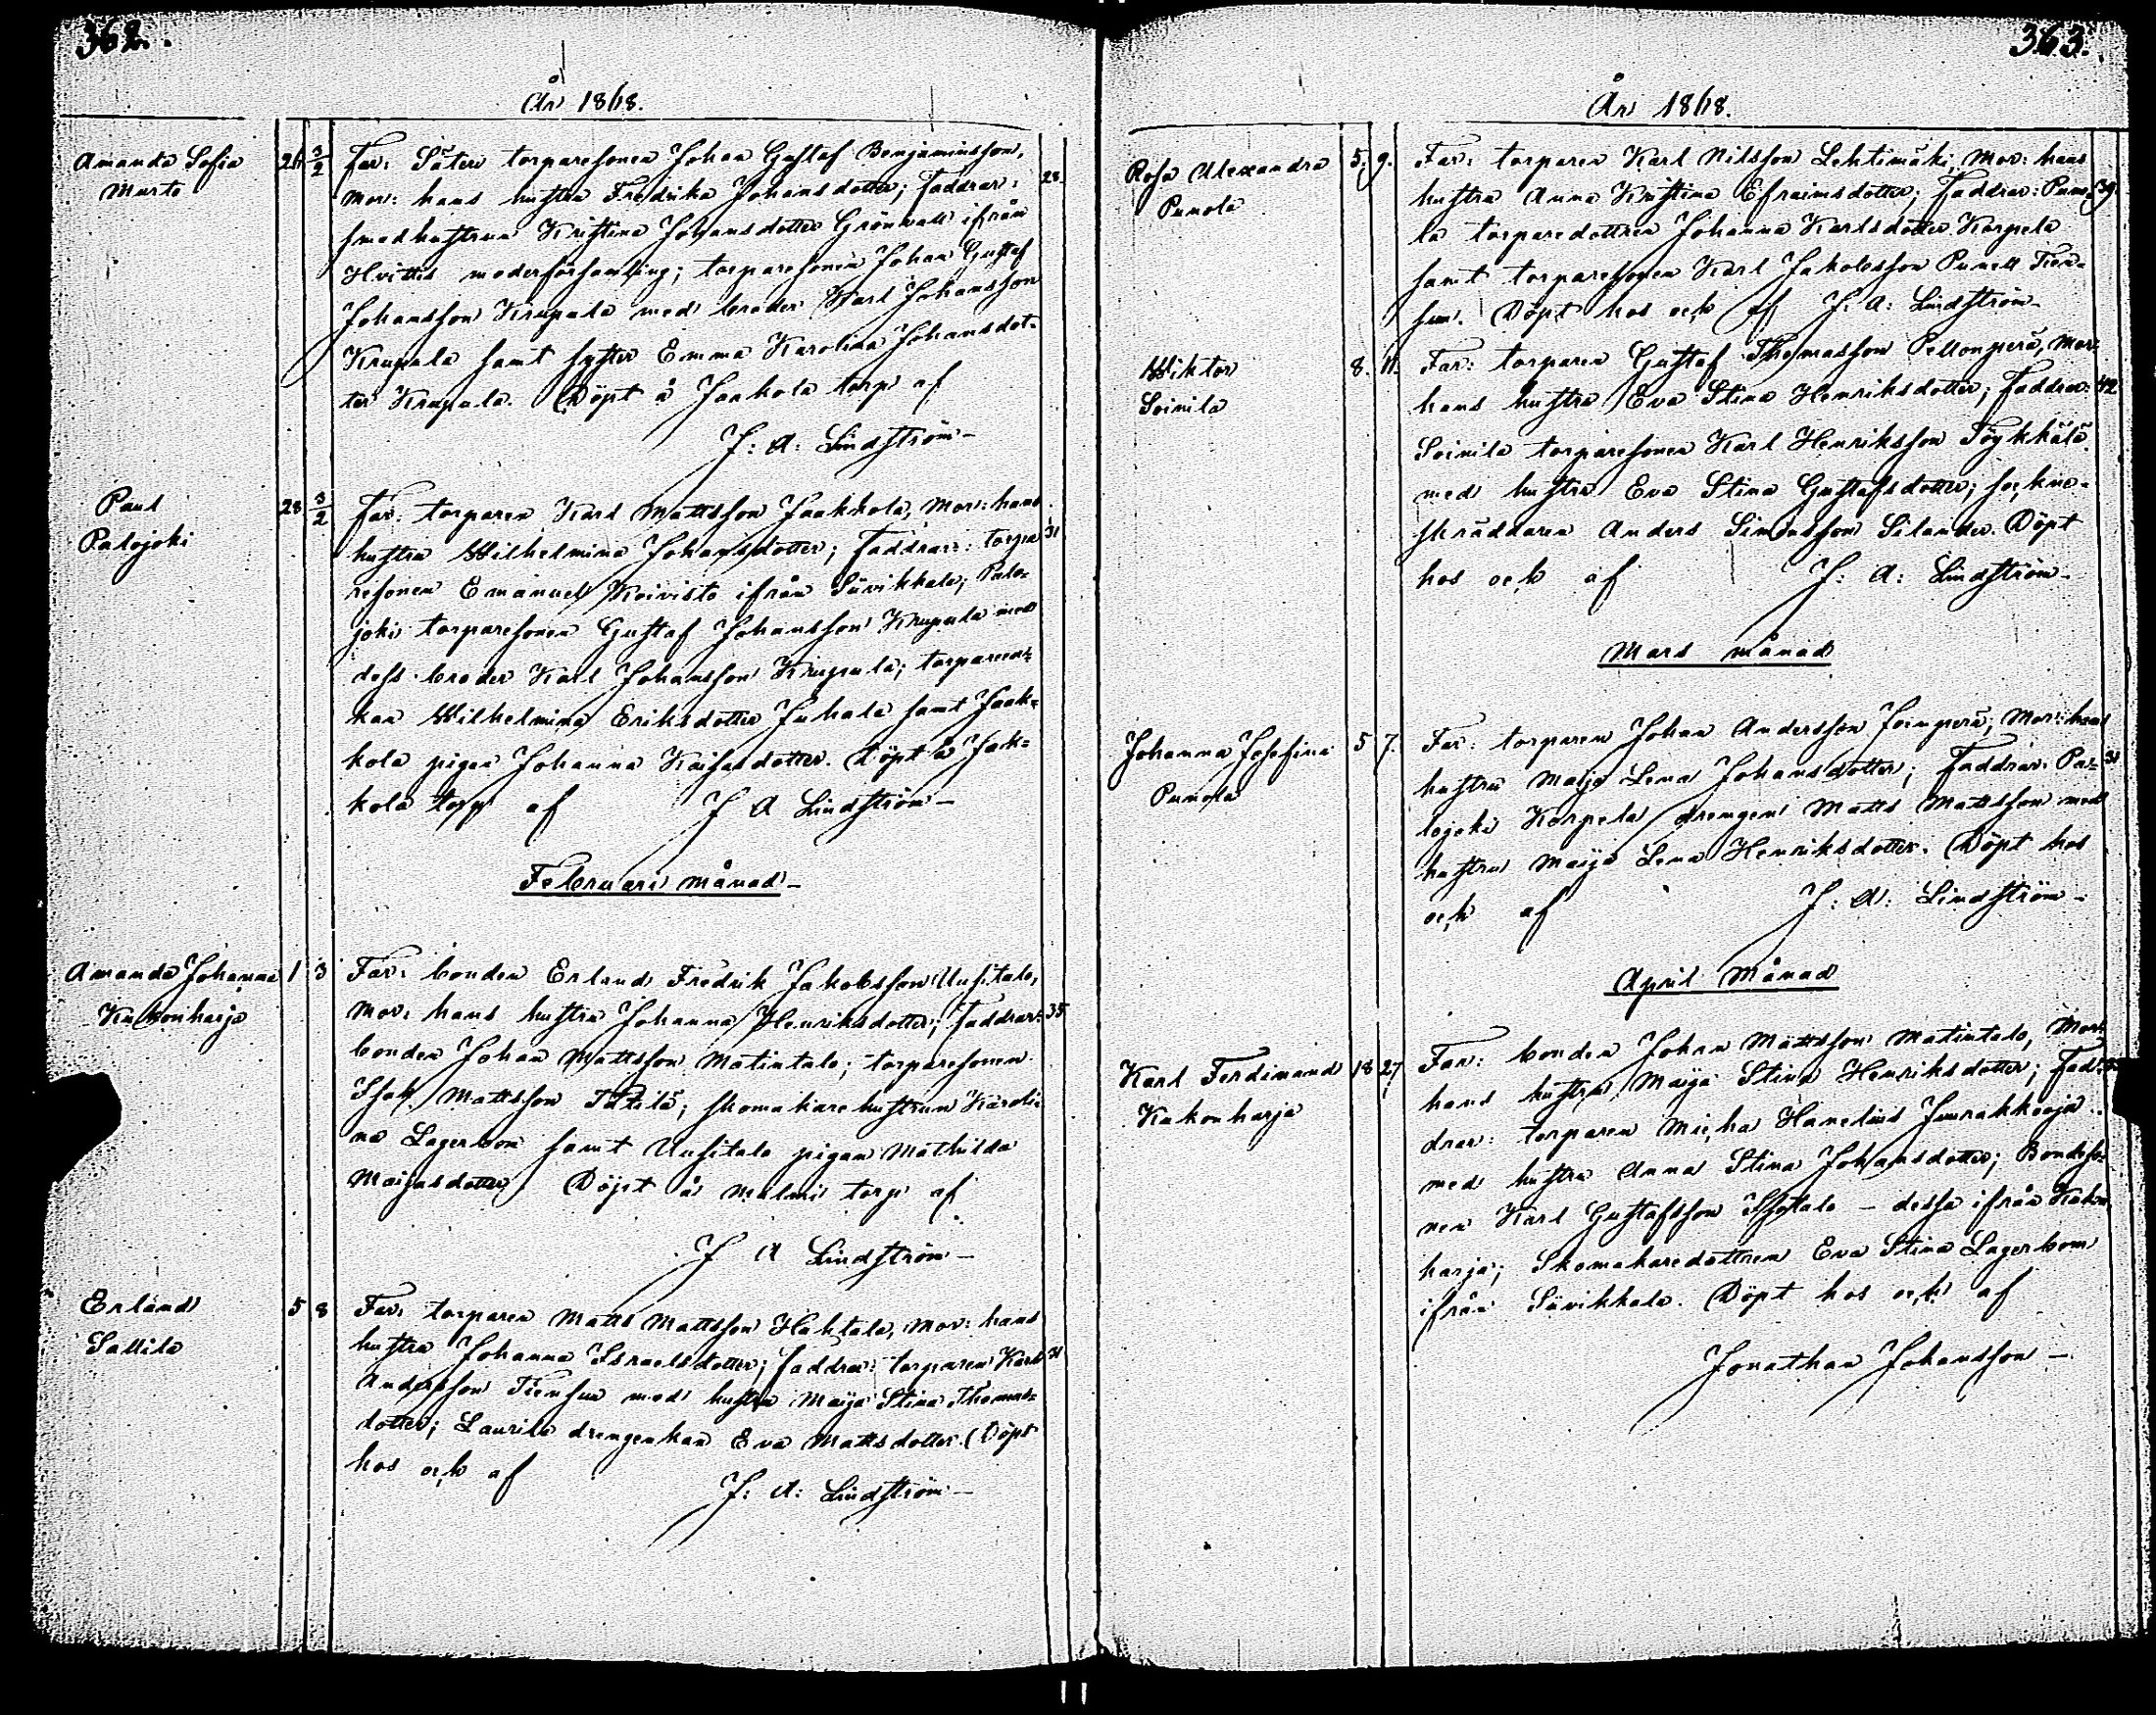 362.
År 1868.
Amanda Sofia 26 3/2 Far: Säteri torparesonen Johan Gustaf Benjaminsson,
Marto Mor: hans hustru Fredrika Johansdotter; faddrar: 28
smedhustrun Kristina Johansdotter Grönvall ifrån
Hvittis moderförsamling; torparesonen Johan Gustaf
Johansson Krupula med broder Karl Johansson
Krupula samt syster Emma Karolina Johansdot-
ter Krupula. Döpt å Jaakola torp af
J: A: Lindström-
Paul 28 3/2 Far: torparen Karl Mattsson Jaakkola, Mor: hans
Palojoki hustru Wilhelmina Johansdotter; faddrar: torpa 31
resonen Emanuel Koivisto ifrån Süvikkala; Palo-
joki torparesonen Gustaf Johansson Krupula med
dess broder Karl Johansson Krupula; torpareen-
kan Wilhelmina Eriksdotter Juhala samt Jaak-
kola pigan Johanna Kaisasdotter. Döpt å Jaak-
kola torp af J A Lindström-
Februari månad-
Amanda Johanna 1 3 Far: bonden Erland Fredrik Jakobsson Uusitalo,
Kakonharja Mor: hans hustru Johanna Henriksdotter; faddrar: 35
bonden Johan Mattsson Matintalo; torparesonen
Isak Mattsson; skomakarehustrun Karoli-
na Lagerbom samt Uusitalo pigan Mathilda
Maijasdotter. Döpt å Malmi torp af
J A Lindström-
Erland 5 8 Far: torparen Matts Mattsson Huhtala, Mor: hans
Sallila hustru Johanna Israelsdotter; faddrar: torparen Karl 31
Andersson Tiensuu med hustru Maija Stina Thomas-
dotter; Laurila drengenkan Eva Mattsdotter. Döpt
hos och af J: A: Lindström-
363.
År 1868.
Rosa Alexandra 5. 9. Far: torparen Karl Nilsson Lehtimäki, Mor: hans
Punola hustru Anna Kristina Efraimsdotter; faddrar: Puno- 39.
la torparedottren Johanna Karlsdotter Korpela
samt torparesonen Karl Jakobsson Tien-
suu. Döpt hos och af J: A: Lindström-
Wiktor 8. 11. Far: torparen Gustaf Thomasson Pellonperä, Mor:
Soinila hans hustru Eva Stina Henriksdotter; faddrar: 42
Soinila torparesonen Karl Henriksson Töykkälä
med hustru Eva Stina Gustafsdotter; sockne-
skräddaren Anders Simonsson Silander. Döpt
hos och af J: A: Lindström-
Mars månad
Johanna Josefina 5 7. Far: torparen Johan Andersson Joenperä, Mor: hans
Punola hustru Maija Lena Johansdotter; faddrar: Pa- 31
lojoki Korpela drengen Matts Mattsson med
hustru Maija Lena Henriksdotter. Döpt hos
och af J: A: Lindström-
April Månad
Karl Ferdinand 18 27 Far: bonden Johan Mattsson Matintalo, Mor:
Kakonharja hans hustru Maija Stina Henriksdotter; fad-
drar: torparen Micha Hanelius Juurakkooja
med hustru Anna Stina Johansdotter; Bondeso-
nen Karl Gustafsson Isotalo - dessa ifrån Kakon
harja; Skomakaredottren Eva Stina Lagerbom
ifrån Süvikkala. Döpt hos och af
Jonathan Johansson-